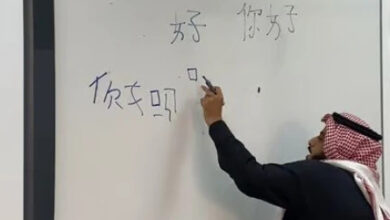 好 你好
口
你女吗